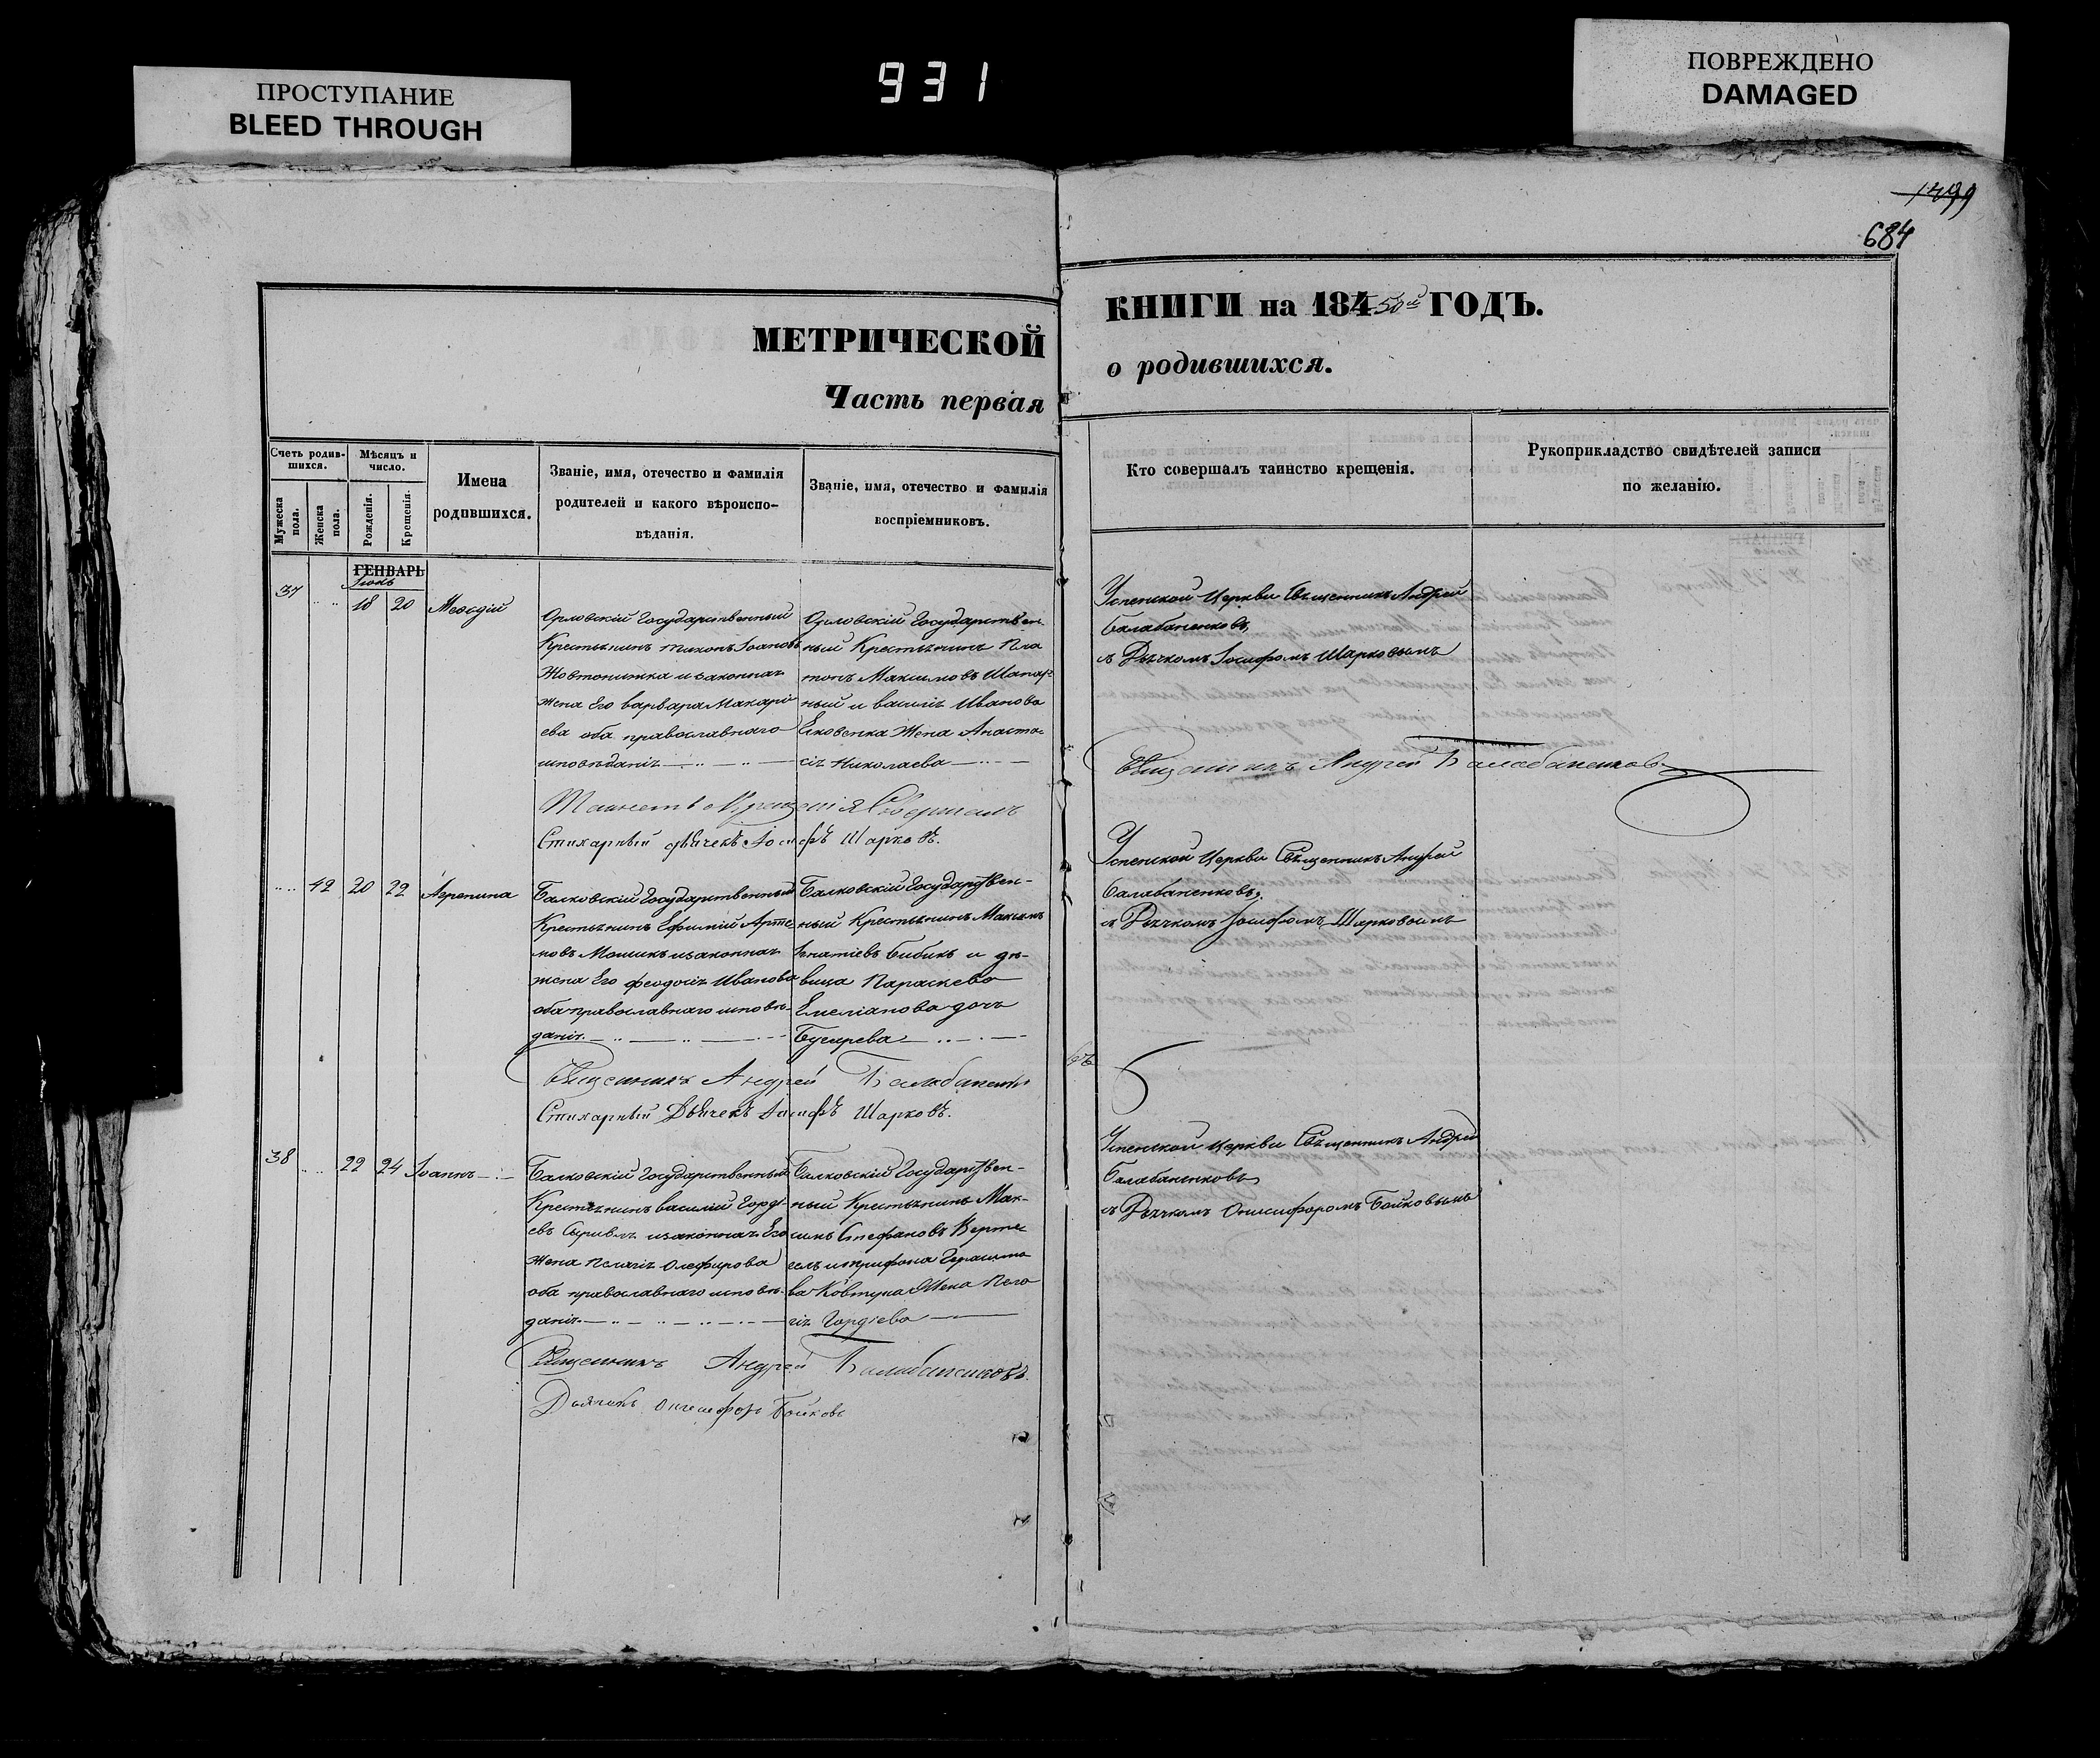 ПРОСТУПАНИЕ
BLEED THROUGH
931
ПОВРЕЖДЕНО
DAMAGED
1499
684
МЕТРИЧЕСКОЙ
Часть первая
КНИГИ на 184 50й ГОДЪ.
о родившихся.
Счетъ родив-
шихся.
Мужеска
пола.
Женска
пола.
Мѣсяцъ и
число.
Рожденія.
Крещенія.
Имена
родившихся.
Званіе, имя, отечество и фамилія
родителей и какого вѣроиспо-
вѣданія.
Званіе, имя, отечество и фамилія
воспріемниковъ.
Кто совершалъ таинство крещенія.
Рукоприкладство свидѣтелей записи
по желанію.
ГЕНВАРЬ
37 18 20 Меѳодій
Орловскій Государственный
Крестьянинъ Тихонъ Іоановъ
и законная
жена Его варвара Макарі-
ева оба православнаго
исповѣданія
Орловскій Государствен-
ный Крестьянинъ Пла
тонъ Максимовъ
ный и василія Иванова
Яковенка Жена Анаста-
сія Николаева
Успенской Церкви Священникъ Андрей
Балабаненковъ
съ Дьячкомъ Іосифомъ Шарковымъ
Священникъ Андрей Балабаненковъ
Таинство Крещенія Совершалъ
Стихарный дьячекъ Іосифъ Шарковъ.
42 20 22 Агрепина
Балковскій Государственный
Крестьянинъ Ефимій Арте
мовъ Мошикъ и законная
жена Его феодосія Иванова
оба православнаго исповѣ-
данія
Балковскій Государствен-
ный Крестьянинъ Максимъ
Игнатіевъ Бибикъ и дѣ-
вица Параскева
Емеліанова дочь
Успенской Церкви Священникъ Андрей
Балабаненковъ
съ Дьячкомъ Іосифомъ Шарковымъ
Священникъ Андрей
Стихарный Дьячекъ Іосифъ Шарковъ.
38 22 24 Іоаннъ
Балковскій Государственный
Крестьянинъ василій Горді-
евъ и законная Его
жена Пелагія Олефирова
оба православнаго исповѣ-
данія
Балковскій Государствен-
ный Крестьянинъ Мак-
симъ Стефановъ
и трифона Герасимо
ва Ковтуна Жена Пела
гія Гордіева
Успенской Церкви Священникъ Андрей
Балабаненковъ
съ Дьячкомъ Онисифоромъ Бойковымъ
Священникъ Андрей Балабаненковъ.
Дьячекъ Онисифоръ Бойковъ